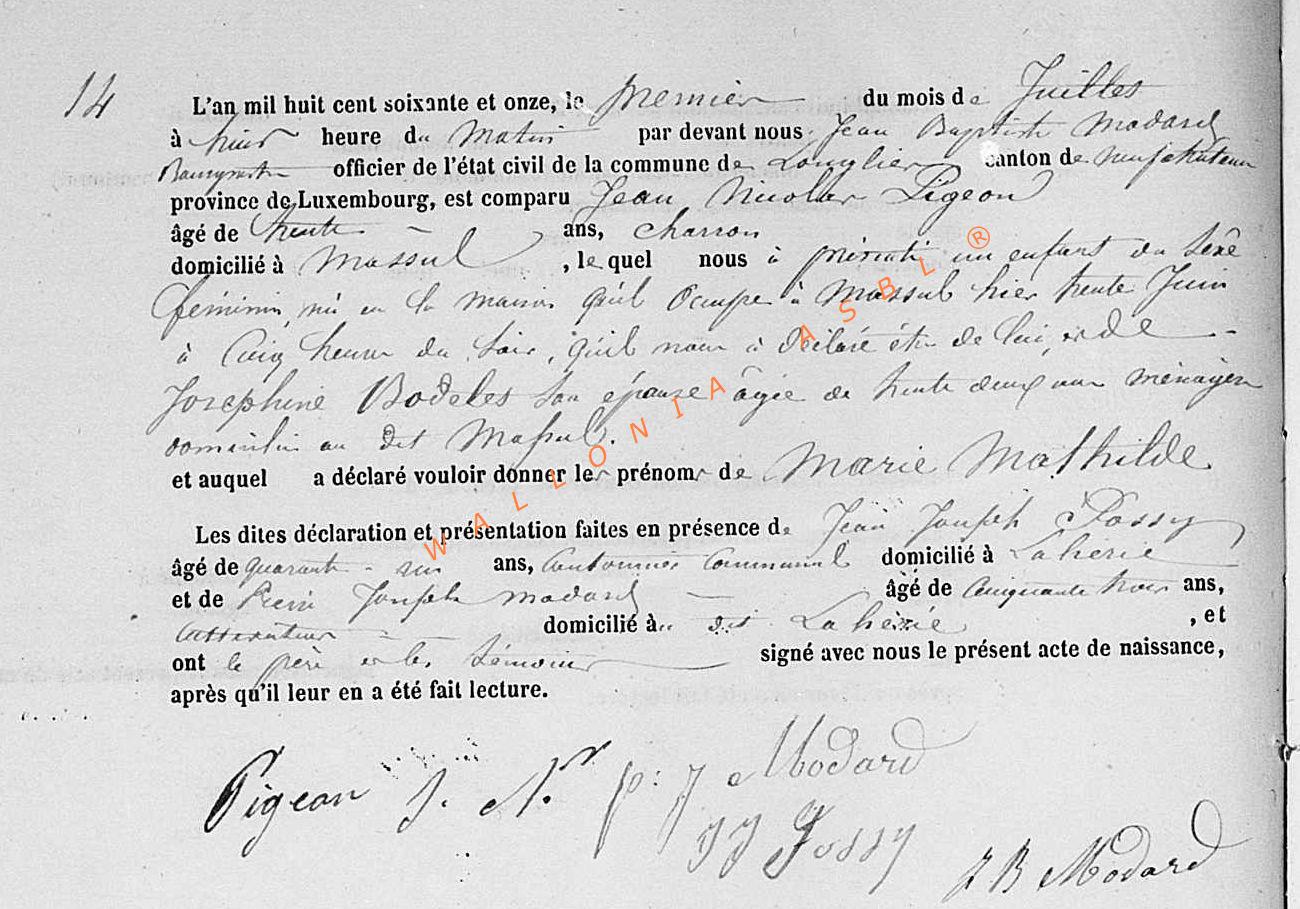 14
L'an mil huit cent soixante et onze, le premier du mois de Juillet
à huit heure du Matin par devant nous Jean Baptiste Modard
Bourgmestre officier de l'état civil de la commune de Longlier canton de neufchateau
province de Luxembourg, est comparu Jean Nicolas Pigeon
âgé de trente ans, charron
domicilié à Massul, le quel nous à présenté un enfant du sexe
féminin, né en la maison qu'il occupe à Massul hier trente Juin
à Cinq heures du soir, qu'il nous à déclaré être de lui, et de
Josephine Bodelet son épouse âgée de trente deux ans ménagère
domiciliée au dit Massul.
et auquel a déclaré vouloir donner les prénoms de Marie Mathilde
Les dites déclaration et présentation faites en présence de Jean Joseph Fossy
âgé de quarante - ans, Cantonnier Communal domicilié à Laherie
et de Pierre Joseph Modard âgé de Cinquante trois ans,
Cultivateur domicilié à dit Laherie, et
ont le père et les témoins signé avec nous le présent acte de naissance,
après qu'il leur en a été fait lecture.
Pigeon J. N. p: J Modard
JJ Fossy
J B Modard
WALLONIA ASBL ®